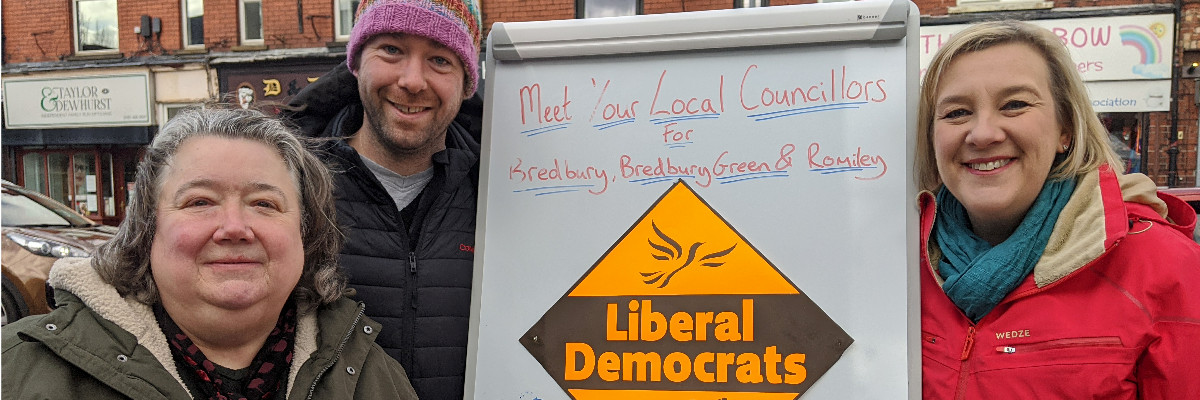 Meet Your Local Councillors
for
Bredbury, Bredbury Green & Romiley
Liberal
Democrats
TAYLOR
& DEWHURST
BOW
WEDZE